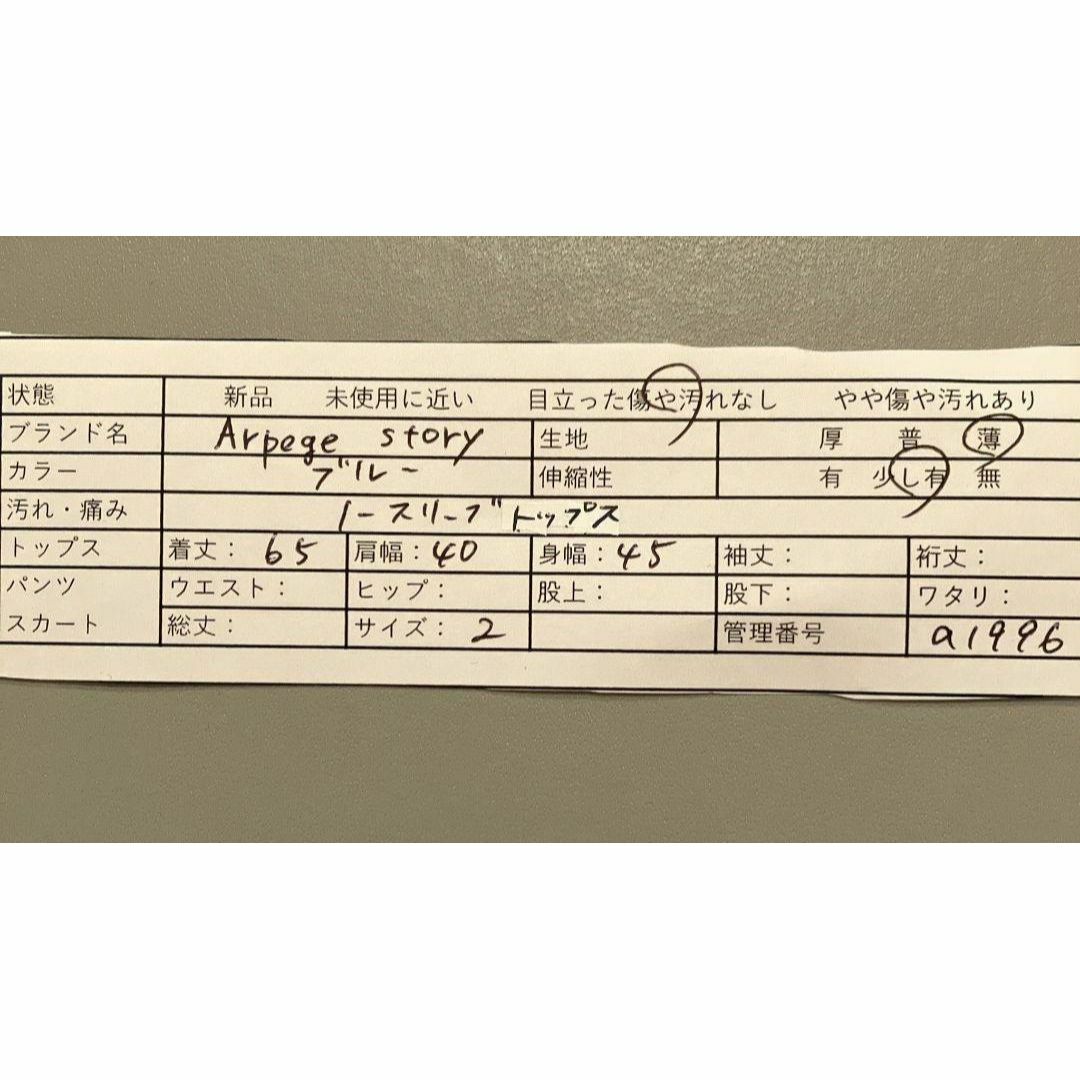 状態 新品 未使用に近い 目立った傷や汚れなし やや傷や汚れあり
ブランド名 Arpege story 生地 厚 普 薄
カラー ブルー 伸縮性 有 少し有 無
汚れ・痛み ノースリーブトップス
トップス 着丈: 65 肩幅: 40 身幅: 45 袖丈: 裄丈:
パンツ ウエスト: ヒップ: 股上: 股下: ワタリ:
スカート 総丈: サイズ: 2 管理番号 a1996